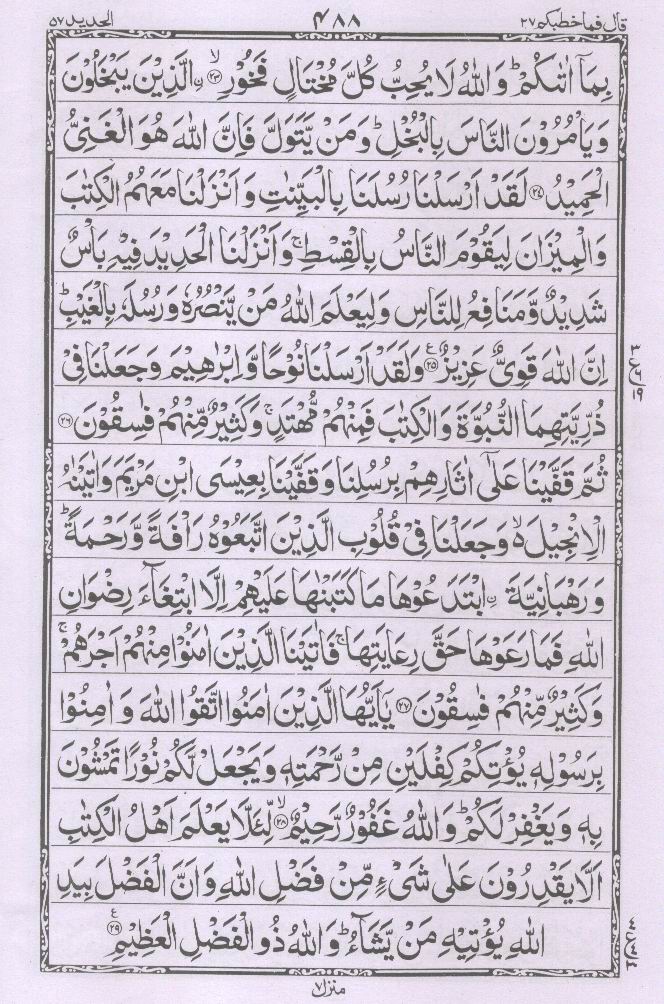 قال فما خطبکم ۲۷ ۴۸۸ الحدید ۵۷
بِمَاۤ اٰتٰىكُمْ ؕ وَاللّٰهُ لَا يُحِبُّ كُلَّ مُخْتَالٍ فَخُوْرِ ۙ﴿۲۳﴾ ِۨالَّذِيْنَ يَبْخَلُوْنَ
وَيَاْمُرُوْنَ النَّاسَ بِالْبُخْلِ ؕ وَمَنْ يَّتَوَلَّ فَاِنَّ اللّٰهَ هُوَ الْغَنِىُّ
الْحَمِيْدُ ﴿۲۴﴾ لَقَدْ اَرْسَلْنَا رُسُلَنَا بِالْبَيِّنٰتِ وَاَنْزَلْنَا مَعَهُمُ الْكِتٰبَ
وَالْمِيْزَانَ لِيَقُوْمَ النَّاسُ بِالْقِسْطِ ۚ وَاَنْزَلْنَا الْحَدِيْدَ فِيْهِ بَاْسٌ
شَدِيْدٌ وَّمَنَافِعُ لِلنَّاسِ وَلِيَعْلَمَ اللّٰهُ مَنْ يَّنْصُرُهٗ وَرُسُلَهٗ بِالْغَيْبِ ؕ
اِنَّ اللّٰهَ قَوِىٌّ عَزِيْزٌ ﴿۲۵﴾ وَلَقَدْ اَرْسَلْنَا نُوْحًا وَّاِبْرٰهِيْمَ وَجَعَلْنَا فِىْ
ذُرِّيَّتِهِمَا النُّبُوَّةَ وَالْكِتٰبَ فَمِنْهُمْ مُّهْتَدٍ ۚ وَكَثِيْرٌ مِّنْهُمْ فٰسِقُوْنَ ﴿۲۶﴾
ثُمَّ قَفَّيْنَا عَلٰٓى اٰثَارِهِمْ بِرُسُلِنَا وَقَفَّيْنَا بِعِيْسَى ابْنِ مَرْيَمَ وَاٰتَيْنٰهُ
الْاِنْجِيْلَ ۙ وَجَعَلْنَا فِىْ قُلُوْبِ الَّذِيْنَ اتَّبَعُوْهُ رَاْفَةً وَّرَحْمَةً ؕ
وَرَهْبَانِيَّةَ ِۨابْتَدَعُوْهَا مَا كَتَبْنٰهَا عَلَيْهِمْ اِلَّا ابْتِغَآءَ رِضْوَانِ
اللّٰهِ فَمَا رَعَوْهَا حَقَّ رِعَايَتِهَا ۚ فَاٰتَيْنَا الَّذِيْنَ اٰمَنُوْا مِنْهُمْ اَجْرَهُمْ ۚ
وَكَثِيْرٌ مِّنْهُمْ فٰسِقُوْنَ ﴿۲۷﴾ يٰۤاَيُّهَا الَّذِيْنَ اٰمَنُوا اتَّقُوا اللّٰهَ وَاٰمِنُوْا
بِرَسُوْلِهٖ يُؤْتِكُمْ كِفْلَيْنِ مِنْ رَّحْمَتِهٖ وَيَجْعَلْ لَّكُمْ نُوْرًا تَمْشُوْنَ
بِهٖ وَيَغْفِرْ لَكُمْ ؕ وَاللّٰهُ غَفُوْرٌ رَّحِيْمٌ ۙ﴿۲۸﴾ لِّئَلَّا يَعْلَمَ اَهْلُ الْكِتٰبِ
اَلَّا يَقْدِرُوْنَ عَلٰى شَىْءٍ مِّنْ فَضْلِ اللّٰهِ وَاَنَّ الْفَضْلَ بِيَدِ
اللّٰهِ يُؤْتِيْهِ مَنْ يَّشَآءُ ؕ وَاللّٰهُ ذُو الْفَضْلِ الْعَظِيْمِ ﴿۲۹﴾ ع
منزل ۷